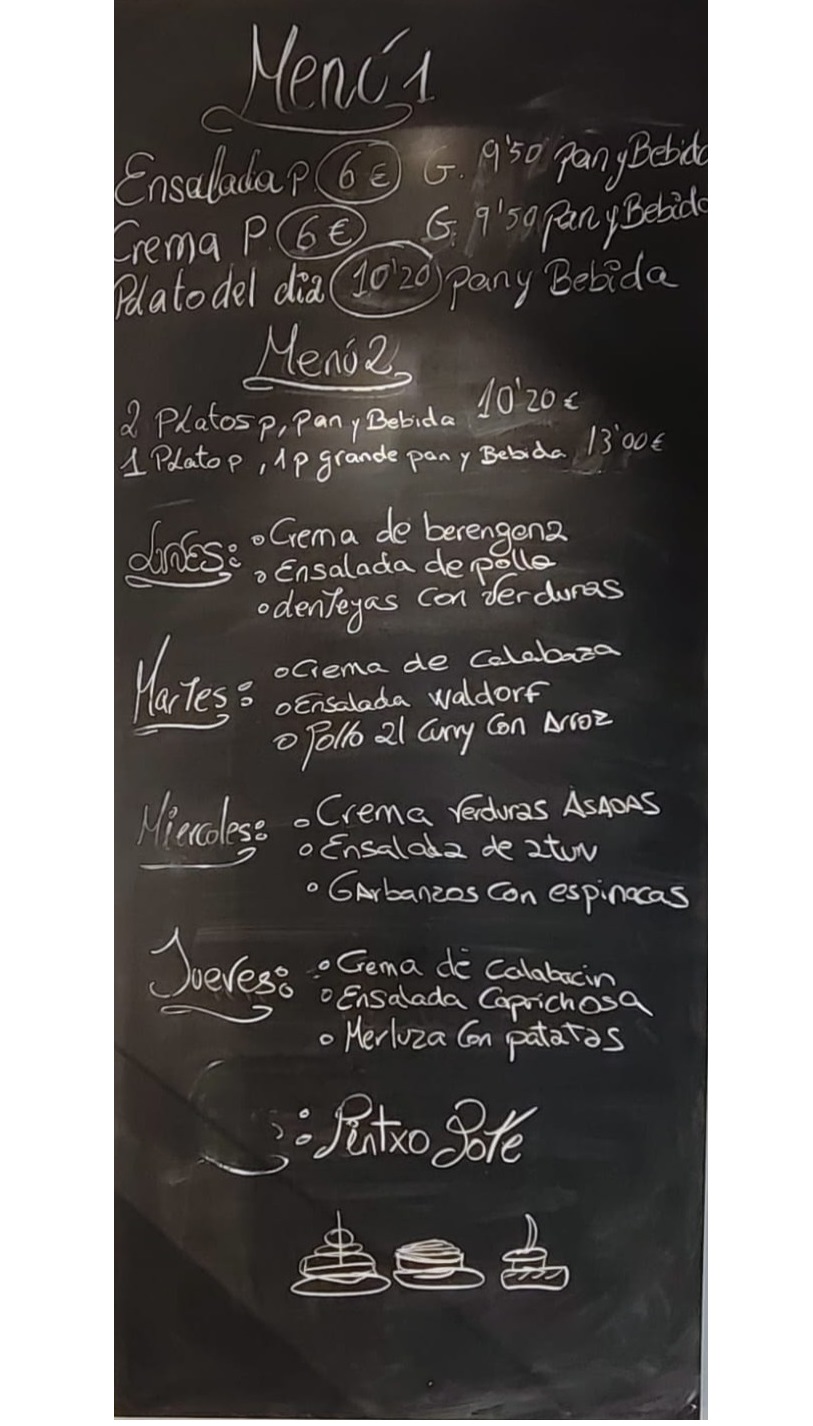 Menú 1
Ensalada P 6 € G. 9'50 pan y Bebida
Crema P. 6 € G. 9'50 pan y Bebida
Plato del dia 10'20 pan y Bebida
Menú 2
2 Platos p, pan y Bebida 10'20 €
1 Plato p, 1 p grande pan y Bebida 13'00 €
Lunes: Crema de berengena
Ensalada de pollo
lenteyas con verduras
Martes: Crema de calabaza
Ensalada waldorf
Pollo al curry con Arroz
Miercoles: Crema verduras ASADAS
Ensalada de atun
GArbanzos con espinacas
Jueves: Crema de calabacin
Ensalada Caprichosa
Merluza Con patatas
: Pintxo Pote